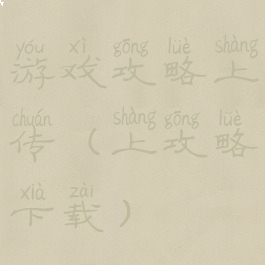 yóu xì gōng lüè shàng
游戏攻略上
chuán shàng gōng lüè
传（上攻略
xià zài
下载）